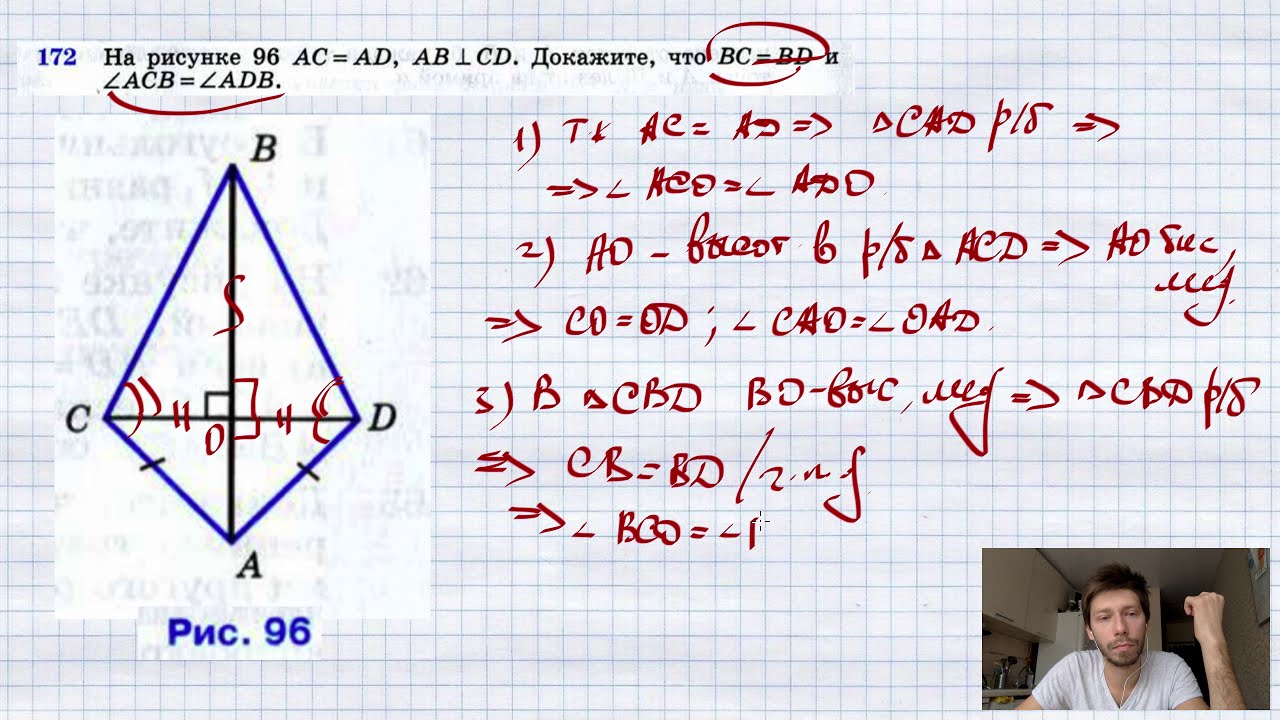 172 На рисунке 96 AC = AD, AB ⊥ CD. Докажите, что BC = BD и
∠ACB = ∠ADB.
1) Тк AC = AD => △CAD р/б =>
=> ∠ ACO = ∠ ADO
2) AO - высот в р/б △ ACD => AO бис,
мед.
=> CO = OD ; ∠ CAO = ∠ OAD.
3) В △CBD BO - выс, мед => △CBD р/б
=> CB = BD / ч.т.д
=> ∠ BCO = ∠
B
C
O
D
A
Рис. 96